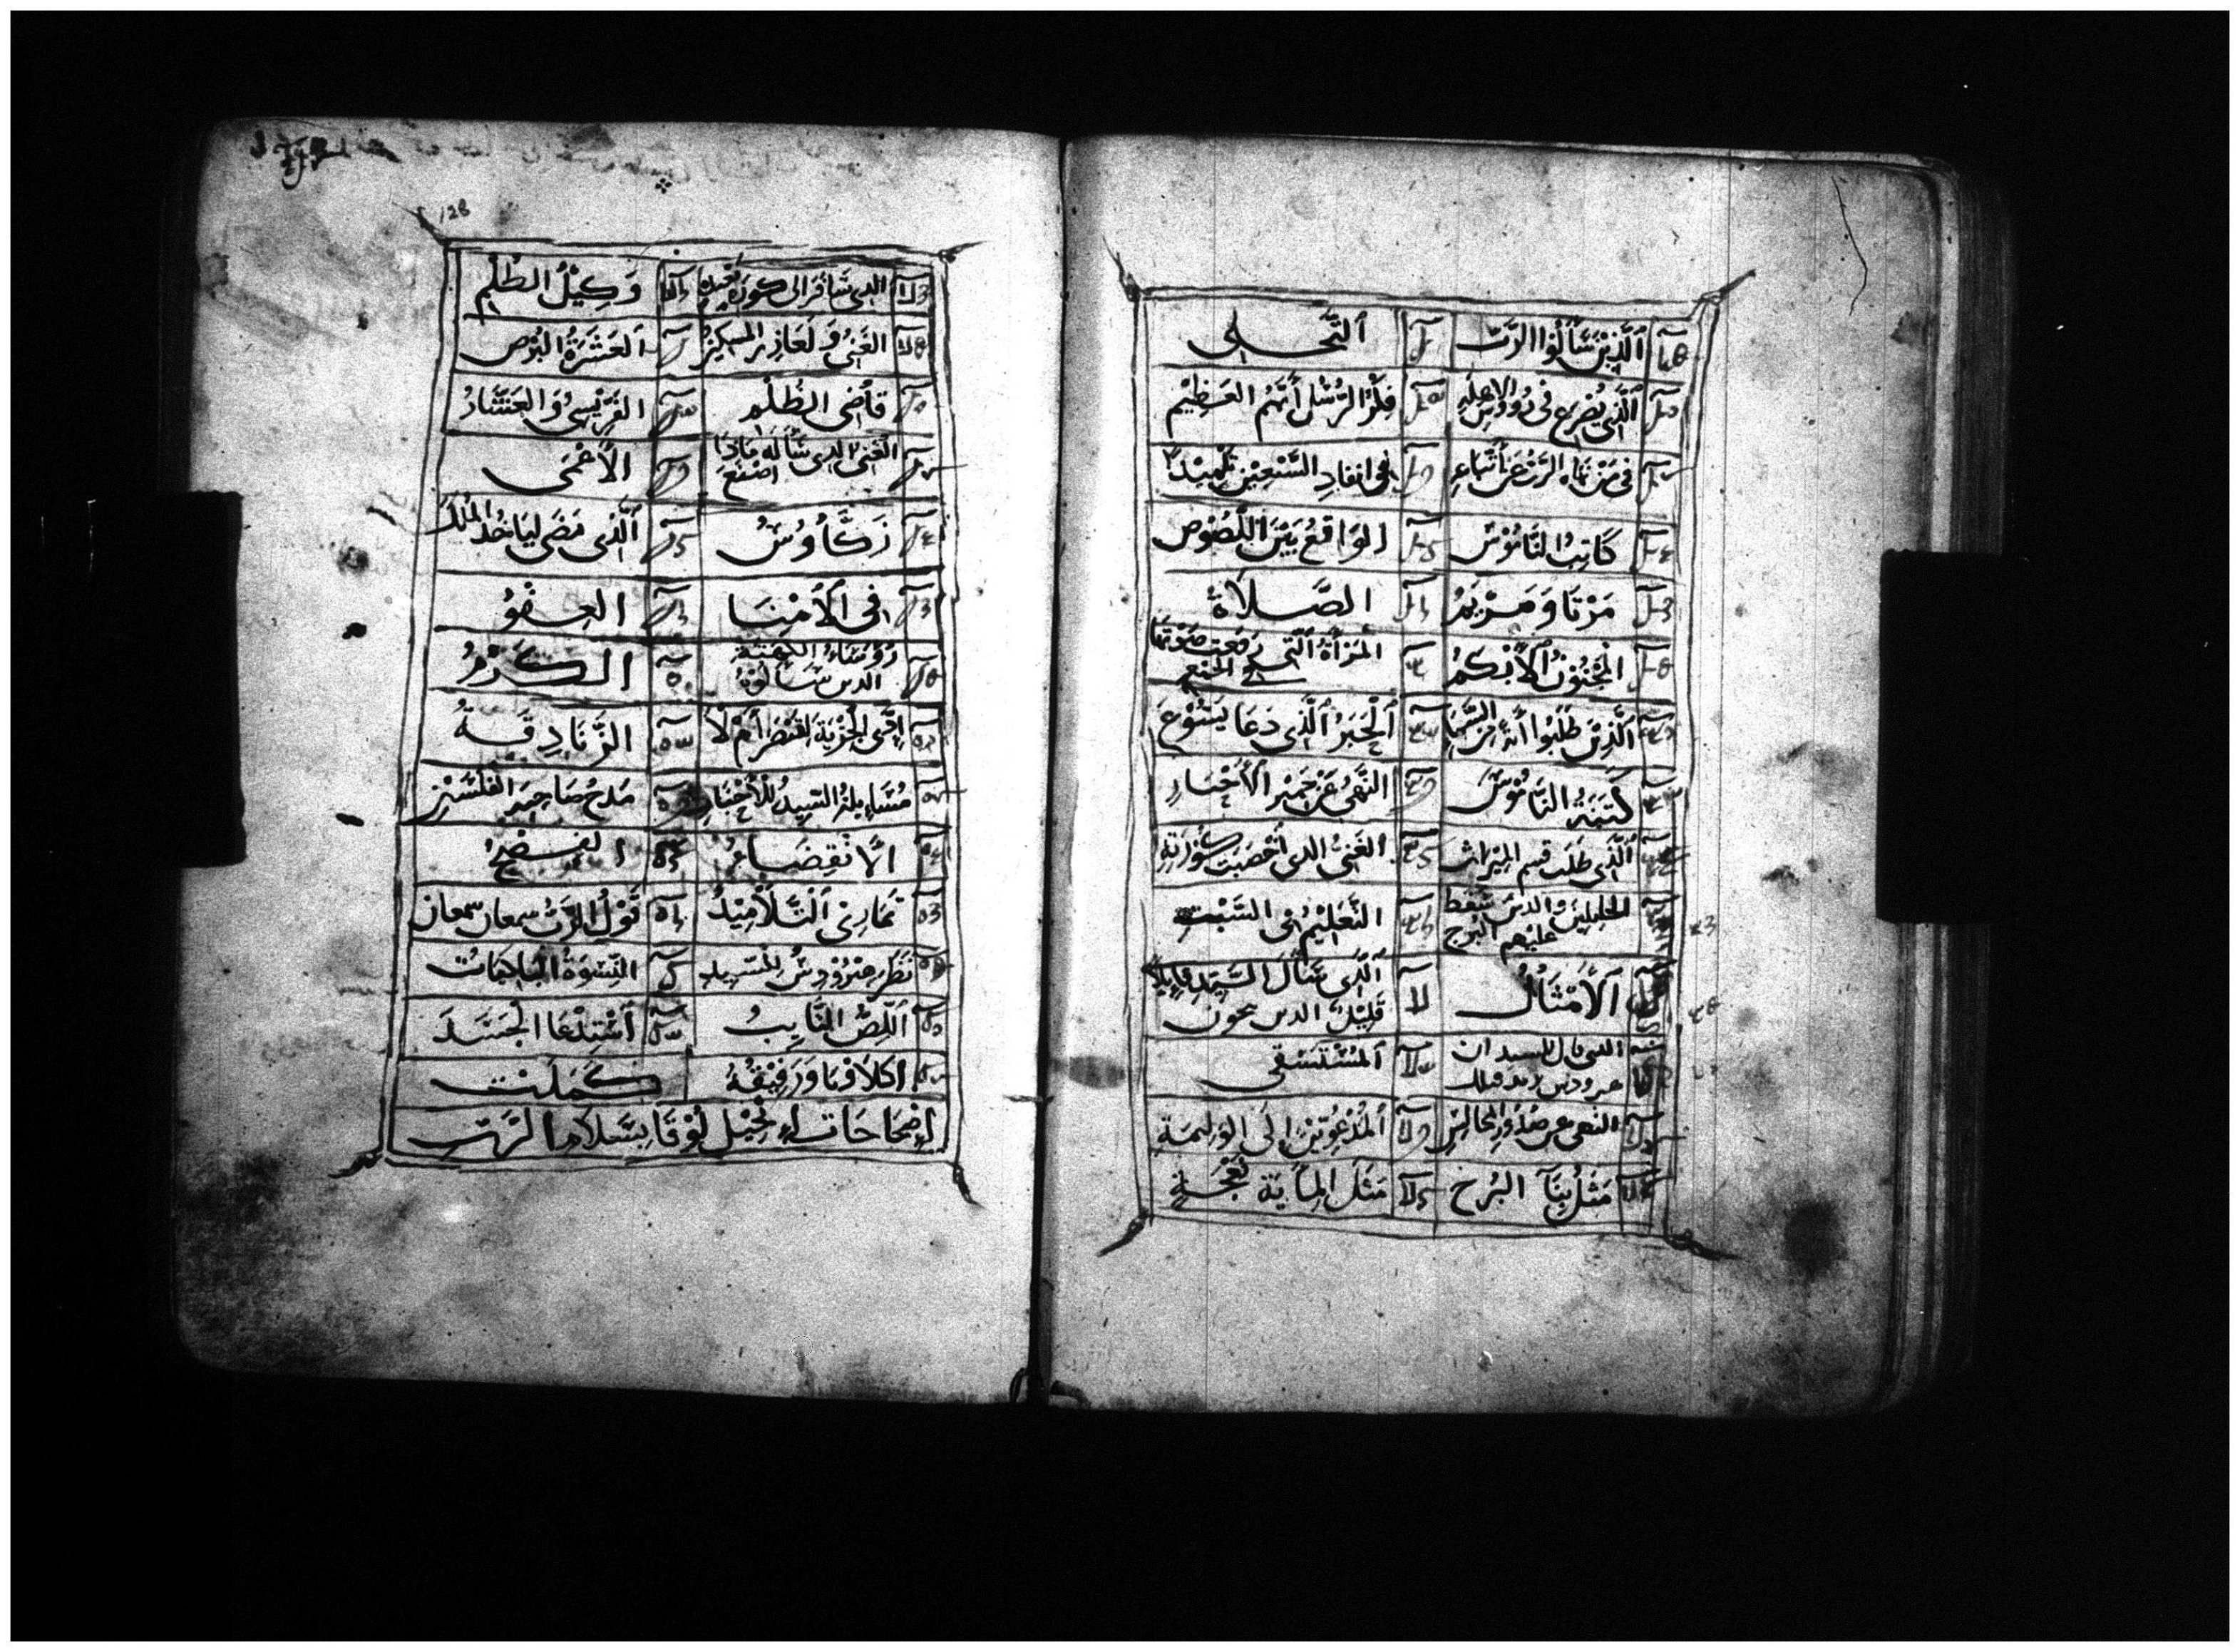 ٱلَّذِيْنَ سَأَلُوْا الرَّبّ
ٱلتَّجَـلى
ٱلَّذِى يُصْرِع فى رُووُس الاهلة
فِكْرُ الرُسُل أَيُّهُم العَـظِيْم
فى مَنْ تَباه الرَّبُّ عَن أتباعِهِ
فى انفاذِ السَّبْعِيْن تِلْمِيْدًا
كَاتِبُ النَّامُوْس
الوَاقعُ بَيْنَ اللّصُوْص
مَرْتَا وَ مَـرْيَمُ
الصَّـلَاةُ
المَجْنُوْنُ ٱلأَبْكَمُ
المَرْأَةُ ٱلَّتى رَفَعت صَوْتَهَا
من الجمع
ٱلَّذِيْنَ طَلَبُوا أَيَةً مِنَ السَّمَا
ٱلْحَبَرُ ٱلَّذِى دَعَا يَسُوْعَ
كَتَبَةُ النَّامُوْسَ
النَّهىُ عَنْ خَمِيْر الأَحْبَـارِ
ٱلَّذِى طَلَبَ قسم المِيْرَاث
الغَنِىُّ الدى أَخْصَبَتْ كُوْرَتهُ
الجليليين والدين سقط
عليهم البرج
التَّعْلِيْمُ فى السَّبْت
ٱلأَمْثَالُ
ٱلَّذِى سَأَلَ السَّيّد قَايِلاً
قَلِيْل الدين ينجون
الدى قال للسيد ان
هيرودس يريد قتلك
ٱلمُسْتَسْقى
النهى عن صُدُور المَجَالِس
ٱلمَدْعُوّيْنَ إلَى الوَلِيمَةِ
مَثَلُ بِنَآ البُرج
مَثَلُ المِأية نعجة
الدى سَافَرَ الى كورة بَعِيدة
وَكِيْلُ الظُلْمِ
الغَنِىُّ وَلَعَازِر المسكينُ
العَشَرَةُ البُرْص
قَاضِى الظُلْمِ
الفَرِيْسِىُّ وَ العَشَّارُ
الغَنِىّ الدى سَأله مَاذَا
اصْنَعَ
الأَعْمَى
زَكَّاوُسُ
ٱلَّذِى مَضَى ليَاخُد المُلكَ
فى ٱلأَمْنَـا
العِـفْوُ
رُؤسَاءُ الكَهَنَـة
الدين سَأَلُوْهُ
الـكَـرْمُ
فى الجِزْيَة لِقَيْصَرَ أَمْ لَا
الزَّنَادِقَـةُ
مُسَاءيلةُ السَيِدُ للأَحْبَارِ
مَدح صَاحِبة الفِلْسَيْنِ
الاَنْقِضَـاءُ
الفِـصْحُ
تَمَارِى ٱلتَّلَامِيْدُ
قَوْلُ الرَّبُّ سمعان سمعان
نَظَرَ هِيْرُوْدِسُ المَسيد
النِّسْوَةُ البَاكِيَاتُ
ٱللِّصُّ التَّايِبُ
أَسْتِدْعَا الجَسَدَ
اكلاَوْبَا وَرَفِيْقُهُ
كَـمَلَتْ
إِصْحَاحَات إِنْجِيْل لُوْقَا بِسَلَام الرَّبِّ